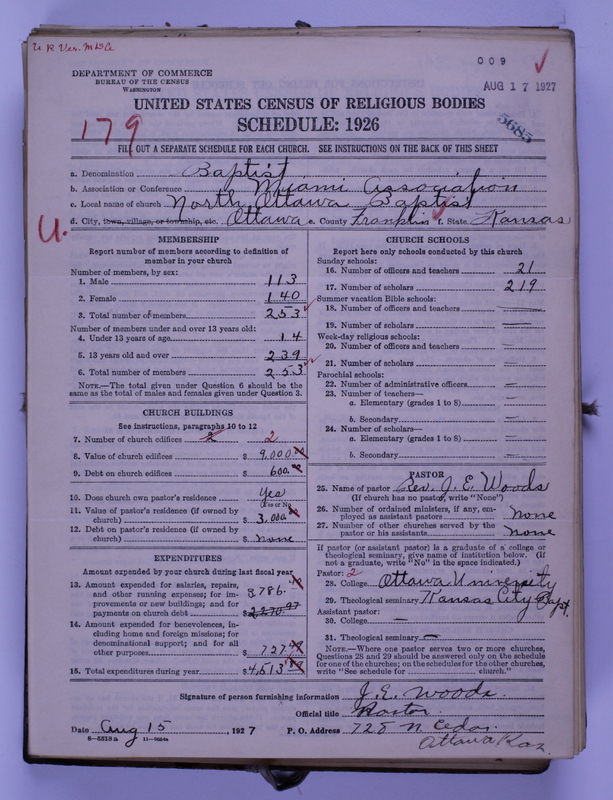 U R Ver. M D C
009
AUG 17 1927
DEPARTMENT OF COMMERCE
BUREAU OF THE CENSUS
WASHINGTON
UNITED STATES CENSUS OF RELIGIOUS BODIES
SCHEDULE: 1926
179
5685
FILL OUT A SEPARATE SCHEDULE FOR EACH CHURCH. SEE INSTRUCTIONS ON THE BACK OF THIS SHEET
a. Denomination Baptist
b. Association or Conference Miami Association
c. Local name of church North Ottawa Baptist
d. City, town, village, or township, etc. Ottawa e. County Franklin f. State Kansas
U.
MEMBERSHIP
Report number of members according to definition of
member in your church
Number of members, by sex:
1. Male 113
2. Female 140
3. Total number of members 253
Number of members under and over 13 years old:
4. Under 13 years of age 14
5. 13 years old and over 239
6. Total number of members 253
NOTE.—The total given under Question 6 should be the
same as the total of males and females given under Question 3.
CHURCH BUILDINGS
See instructions, paragraphs 10 to 12
7. Number of church edifices 2 2
8. Value of church edifices $ 9,000.00
9. Debt on church edifices $ 600.00
10. Does church own pastor's residence Yes
(Yes or No)
11. Value of pastor's residence (if owned by
church) $ 3,000.00
12. Debt on pastor's residence (if owned by
church) $ none
EXPENDITURES
Amount expended by your church during last fiscal year
13. Amount expended for salaries, repairs,
and other running expenses; for im-
provements or new buildings; and for
payments on church debt $ 3786.
14. Amount expended for benevolences, in-
cluding home and foreign missions; for
denominational support; and for all
other purposes $ 727.
15. Total expenditures during year $ 4,513
CHURCH SCHOOLS
Report here only schools conducted by this church
Sunday schools:
16. Number of officers and teachers 21
17. Number of scholars 219
Summer vacation Bible schools:
18. Number of officers and teachers —
19. Number of scholars —
Week-day religious schools:
20. Number of officers and teachers —
21. Number of scholars —
Parochial schools:
22. Number of administrative officers —
23. Number of teachers—
a. Elementary (grades 1 to 8) —
b. Secondary —
24. Number of scholars—
a. Elementary (grades 1 to 8) —
b. Secondary —
PASTOR
25. Name of pastor Rev. J. E. Woods
(If church has no pastor, write "None")
26. Number of ordained ministers, if any, em-
ployed as assistant pastors none
27. Number of other churches served by the
pastor or his assistants none
If pastor (or assistant pastor) is a graduate of a college or
theological seminary, give name of institution below. (If
not a graduate, write "No" in the space indicated.)
Pastor: 2
28. College Ottawa University
29. Theological seminary Kansas City Bapt.
Assistant pastor:
30. College —
31. Theological seminary —
NOTE.—Where one pastor serves two or more churches,
Questions 28 and 29 should be answered only on the schedule
for one of the churches; on the schedules for the other churches,
write "See schedule for church."
Signature of person furnishing information J. E. Woods.
Official title Pastor
Date Aug 15, 1927 P. O. Address 728 N Cedar
Ottawa Kan.
8—5518a 11—9024a